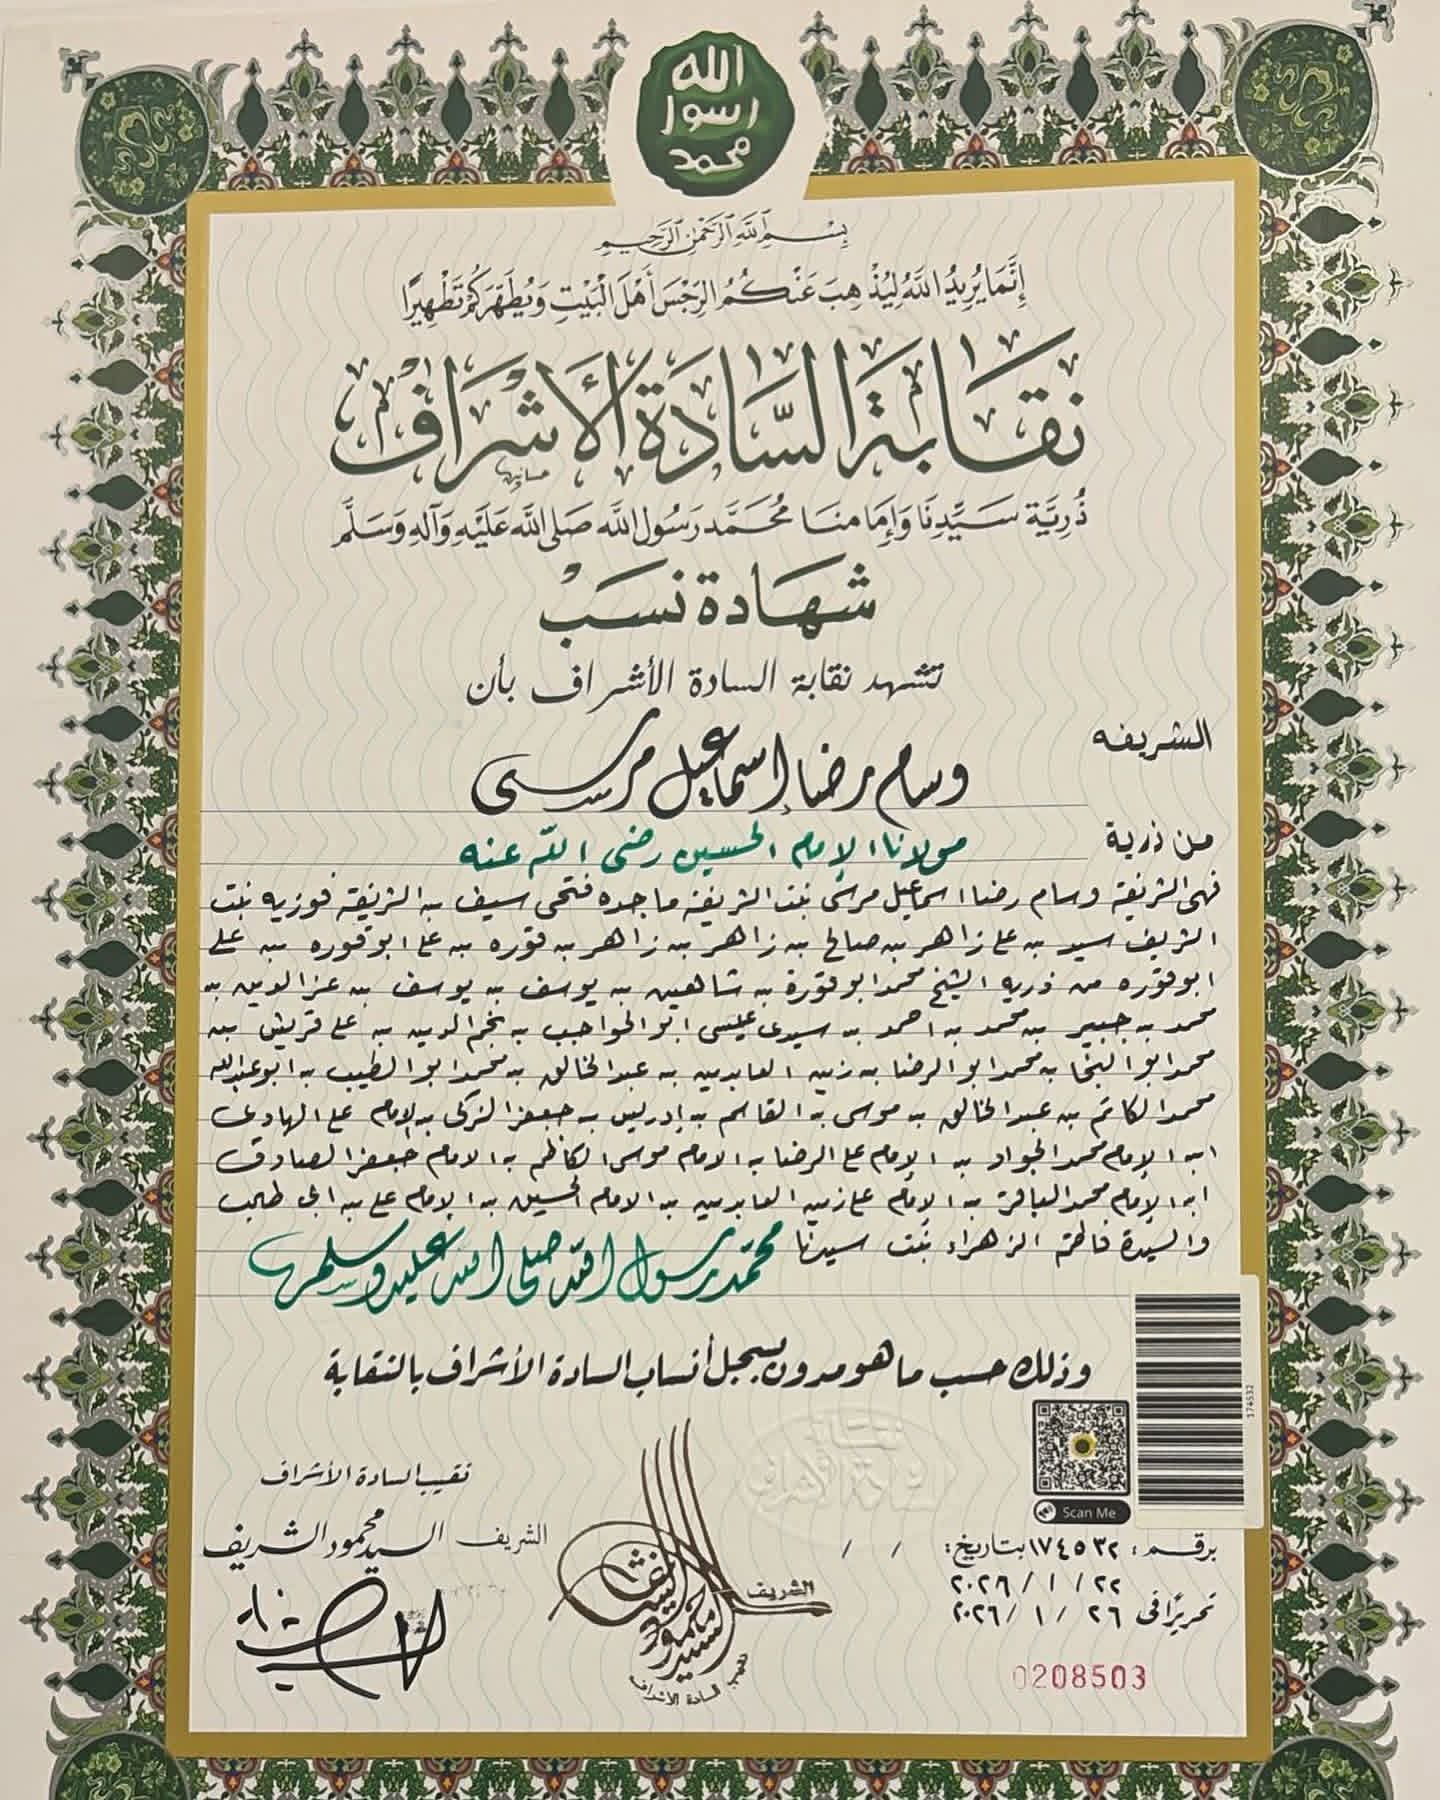 الله
رسول
محمد
بِسْمِ اللَّهِ الرَّحْمَٰنِ الرَّحِيمِ
إِنَّمَا يُرِيدُ اللَّهُ لِيُذْهِبَ عَنْكُمُ الرِّجْسَ أَهْلَ الْبَيْتِ وَيُطَهِّرَكُمْ تَطْهِيرًا
نقابة السادة الأشراف
ذُرِّيَّة سَيِّدِنَا وَإِمَامِنَا مُحَمَّد رَسُول اللَّه صَلَى اللَّه عَلَيْهِ وَآلِهِ وَسَلَّم
شهادة نسب
تشهد نقابة السادة الأشراف بأن
الشريفه وسام رضا إسماعيل مرسى
من ذرية مولانا الإمام الحسين رضى الله عنه
فهى الشريفة وسام رضا اسماعيل مرسى بنت الشريفة ماجده فتحى سيف بن الشريفة فوزيه بنت
الشريف سيد بن على زاهر بن صالح بن زاهر بن زاهر بن قوره بن على ابو قوره بن على
ابو قوره من ذريه الشيخ محمد ابو قورة بن شاهين بن يوسف بن يوسف بن عز الدين بن
محمد بن جبير بن محمد بن احمد بن سيدى عيسى ابو المواجب بن نجم الدين بن على قريش بن
محمد ابو النجا بن محمد ابو الرضا بن زين العابدين بن عبد الخالق بن محمد ابو الطيب بن ابو عبدالله
محمد الكاتم بن عبد الخالق بن موسى بن القاسم بن إدريس بن جعفر الزكى بن الإمام على الهادى
ابن الإمام محمد الجواد بن الإمام على الرضا بن الامام موسى الكاظم بن الامام جعفر الصادق
ابن الإمام محمد الباقر بن الإمام على زين العابدين بن الامام الحسين بن الإمام على بن ابى طالب
والسيدة فاطمة الزهراء بنت سيدنا محمد رسول الله صلى الله عليه وسلم
وذلك حسب ما هو مدون بسجل أنساب السادة الأشراف بالنقابة
174532
Scan Me
نقابة السادة الأشراف
نقيب السادة الأشراف
الشريف السيد محمود الشريف
الشريف
نقيب السادة الأشراف
برقم: ١٧٤٥٣٢ بتاريخ: / /
٢٢ / ١ / ٢٠٢٦
تحريرًا فى ٢٦ / ١ / ٢٠٢٦
0208503